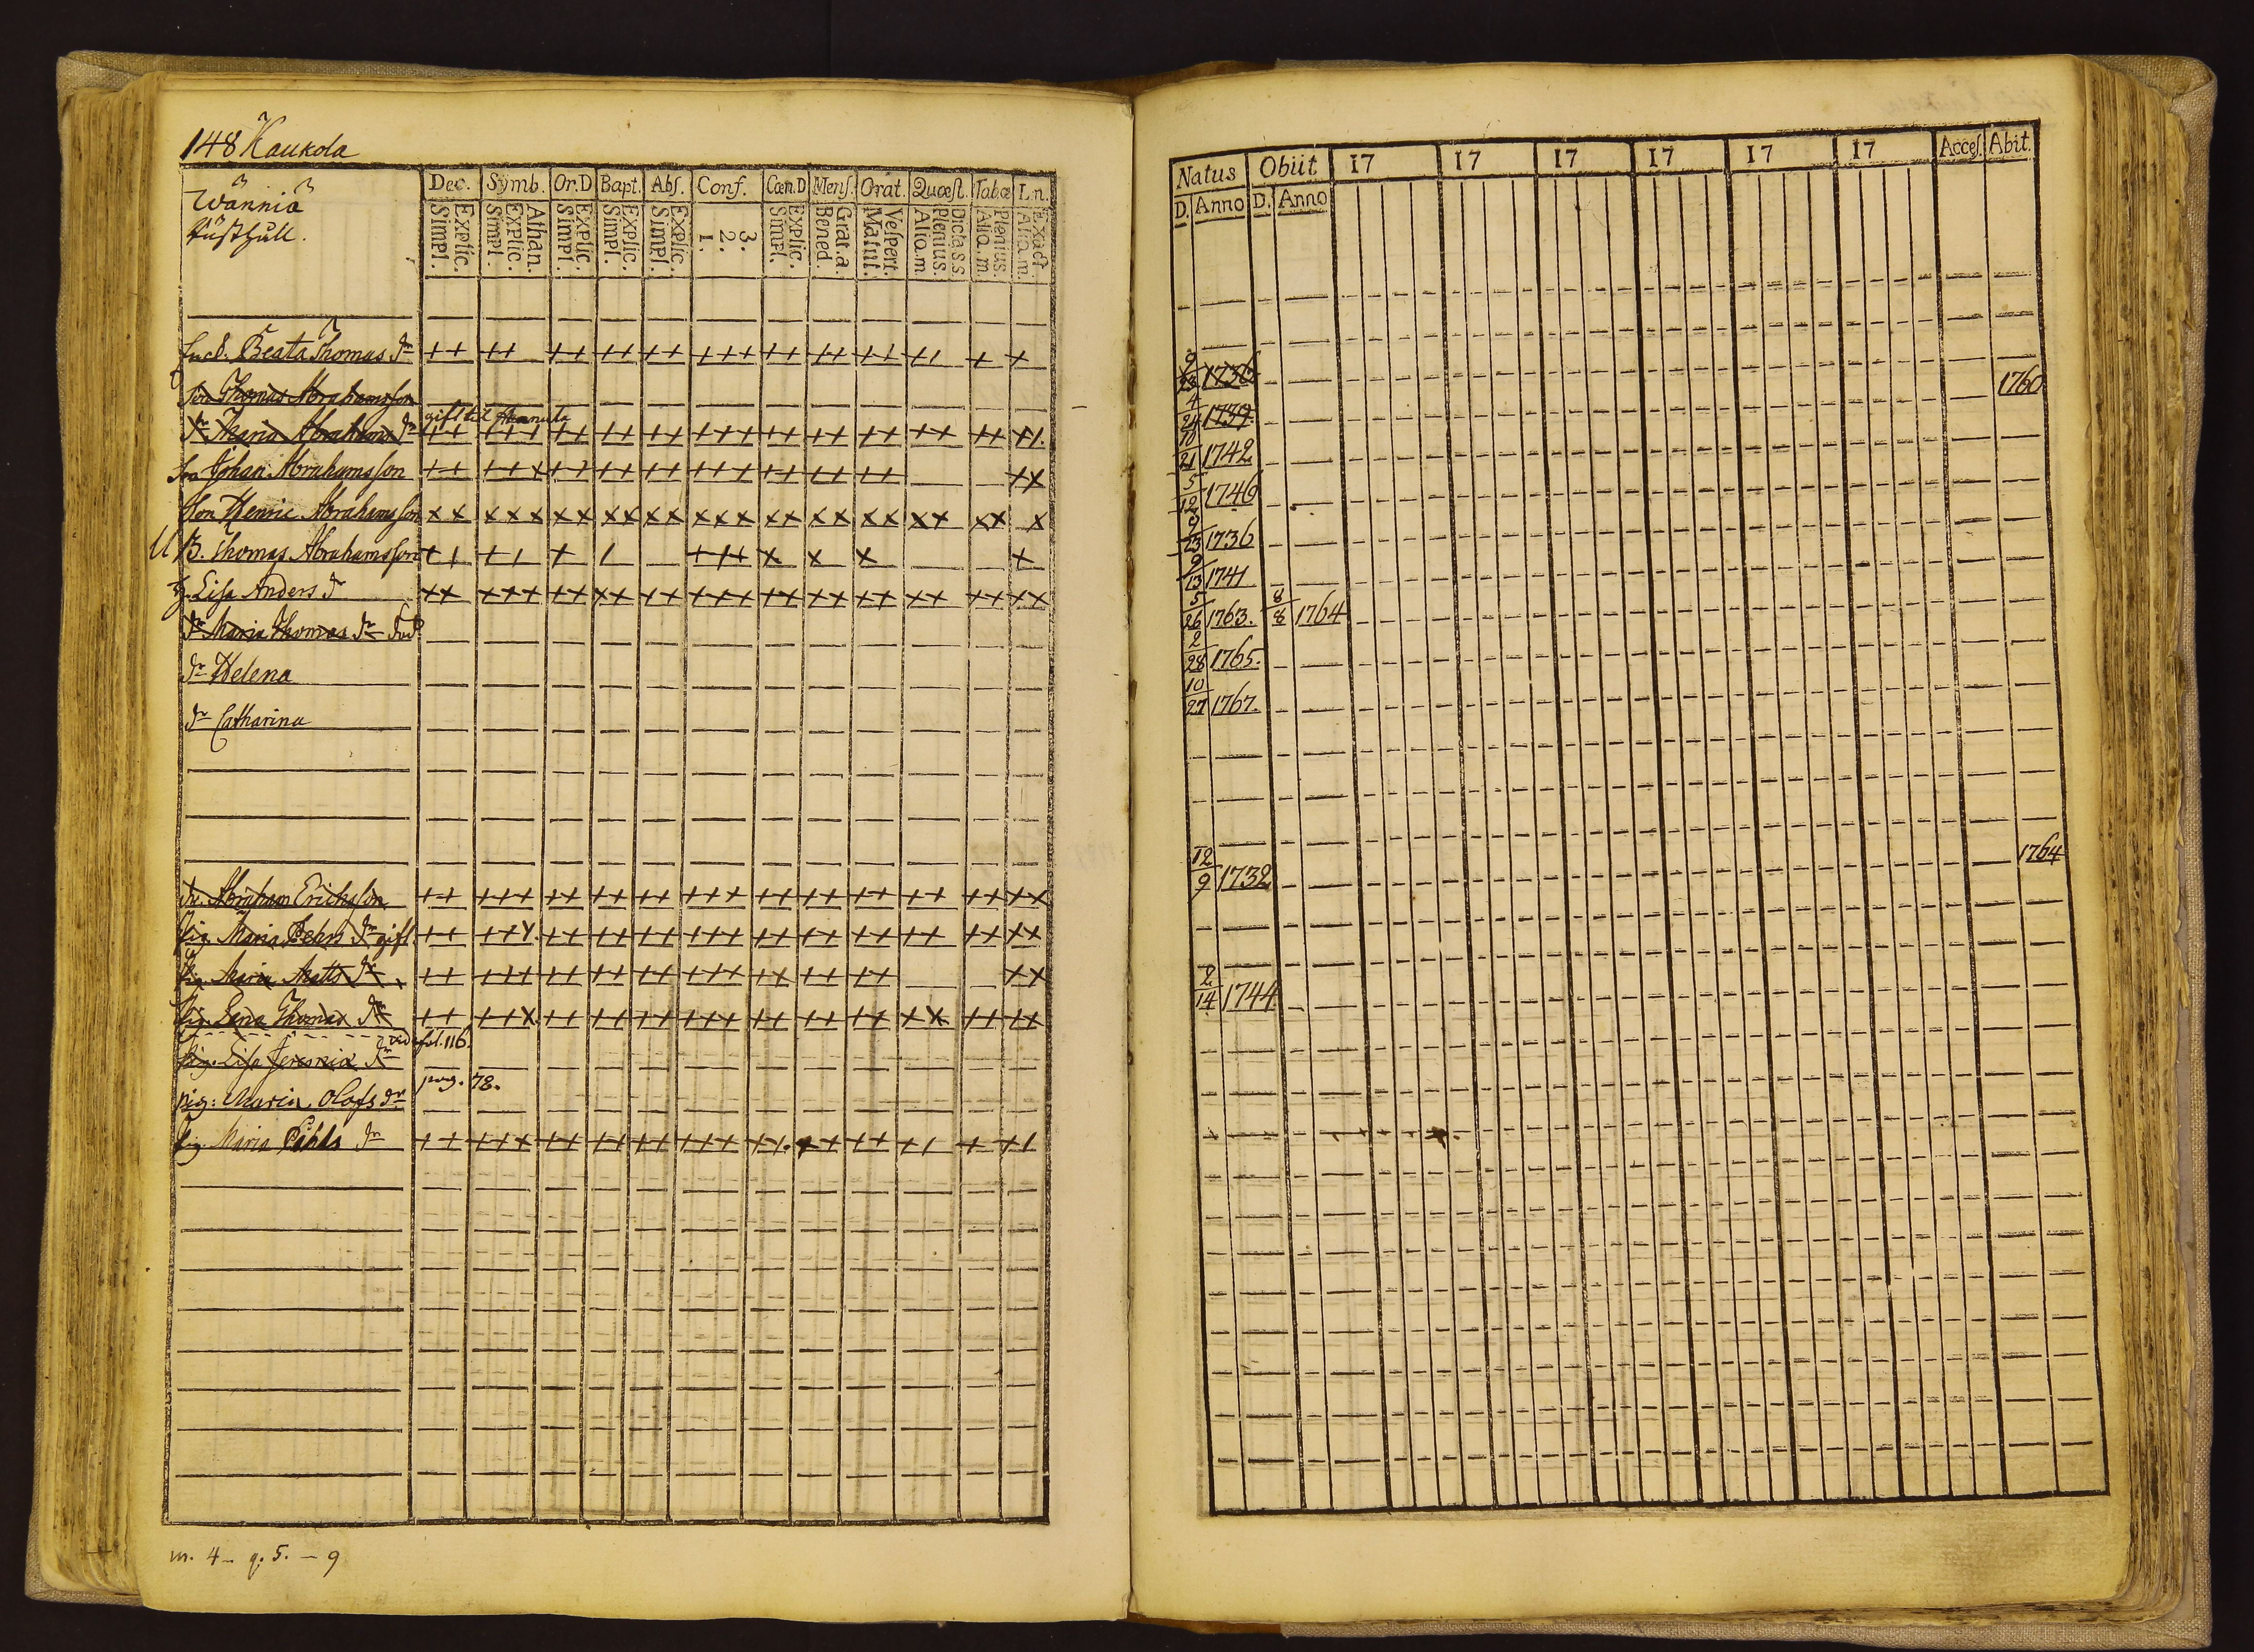 148 Kaukola
Wanniä
Rusthull.
Dec. Symb. Or.D Bapt. Abſ. Conf. Cœn.D Menſ. Orat. Quæſt. Tab.œ L.n.
Simpl. Explic. Simpl. Explic. Athan. Simpl. Explic. Simpl. Explic. Simpl. Explic. 1. 2. 3. Simpl. Explic. Bened. Grat.a. Matut. Veſpert. Aliq.m. Plenius. Dicta.s.s. Aliq.m. Plenius. Aliq.m. Exact.
Beata Thomas dr
Son Thomas Abrahamsson
gift til
dr Maria Abrahams dr
Son Johan Abrahamsson
Son Henric Abrahamsson
U B. Thomas Abrahamsson
h. Lisa Anders dr
dr Maria Thomas dr död
dr Helena
dr Catharina
dr. Abraham Ericksson
pig. Maria Pehrs dr gift
pig. Maria Matts dr
pig. Lena Thomas dr
vid fol. 116.
pig. Lisa Jeremia dr
pag. 78.
pig: Maria Olofs dr
pig Maria Påhls dr
m. 4 - q. 5. - 9
Natus Obiit 17 17 17 17 17 17 Acceſ. Abit.
D. Anno D. Anno
9/23 1736
1760
4/24 1739
10/21 1742
5/12 1746
9/23 1736
9/13 1741
5/26 1763. 8/8 1764
2/28 1765.
10/27 1767.
12/9 1732
1764
2/14 1744